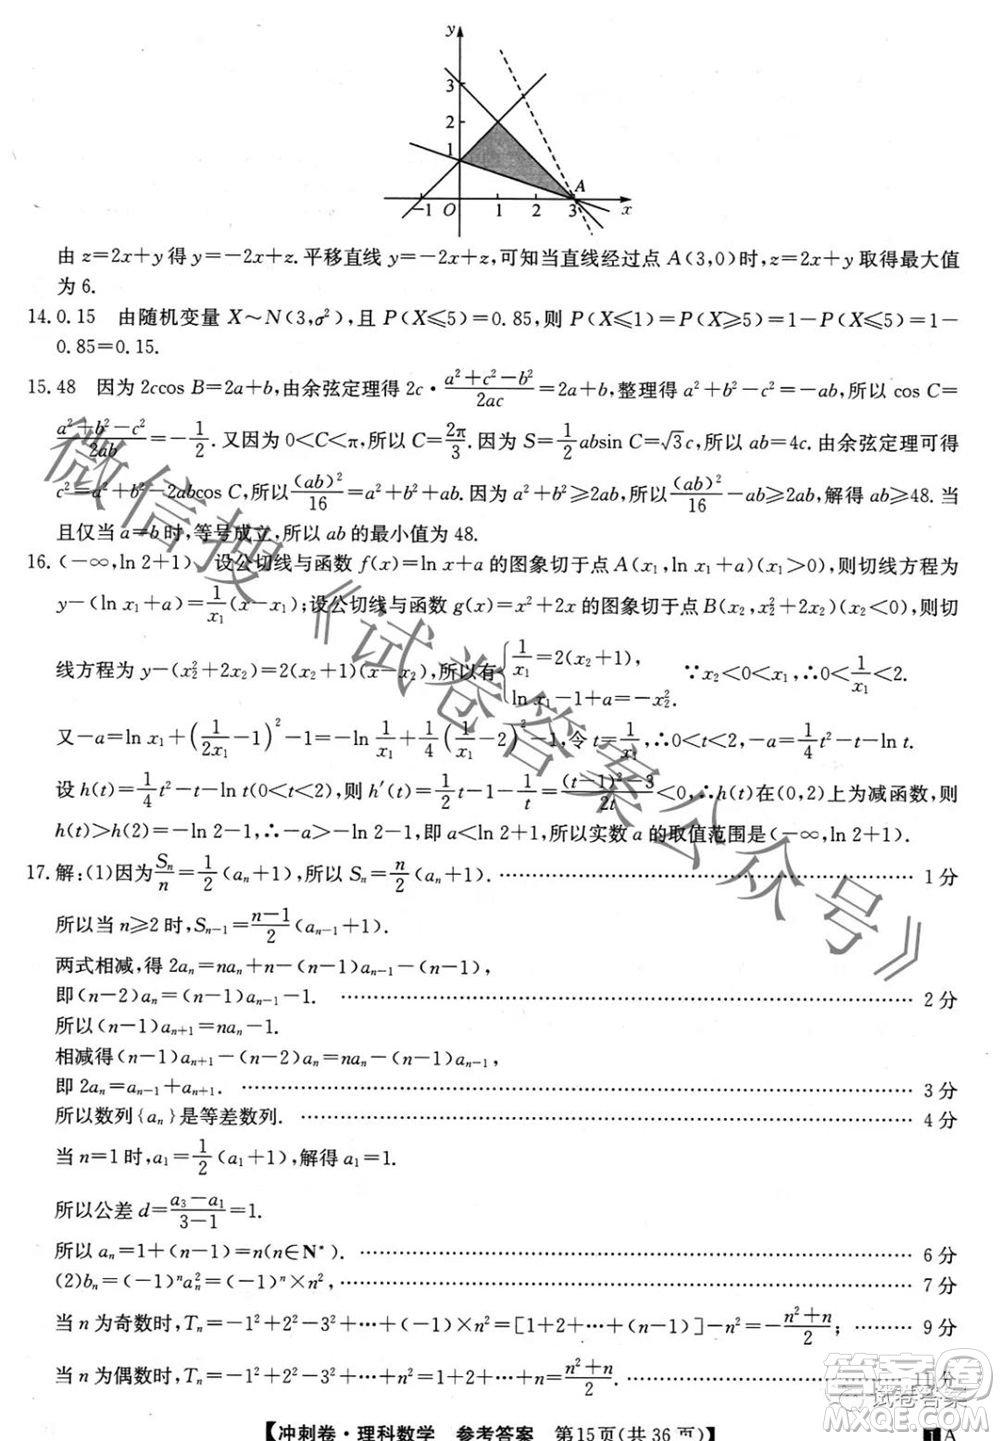 y
3
2
1
A
-1 O 1 2 3 x
由 z=2x+y 得 y=-2x+z.平移直线 y=-2x+z,可知当直线经过点 A(3,0)时,z=2x+y 取得最大值
为 6.
14.0.15 由随机变量 X~N(3,σ²),且 P(X≤5)=0.85,则 P(X≤1)=P(X≥5)=1-P(X≤5)=1-
0.85=0.15.
15.48 因为 2ccos B=2a+b,由余弦定理得 2c·(a²+c²-b²)/(2ac)=2a+b,整理得 a²+b²-c²=-ab,所以 cos C=
(a²+b²-c²)/(2ab)=-1/2.又因为 0<C<π,所以 C=2π/3.又因为 S=1/2 absin C=√3c,所以 ab=4c.由余弦定理可得
c²=a²+b²-2abcos C,所以(ab)²/16=a²+b²+ab.因为 a²+b²≥2ab,所以(ab)²/16-ab≥2ab,解得 ab≥48.当
且仅当 a=b 时,等号成立,所以 ab 的最小值为 48.
16.(-∞,ln 2+1) 设公切线与函数 f(x)=ln x+a 的图象切于点 A(x₁,ln x₁+a)(x₁>0),则切线方程为
y-(ln x₁+a)=1/x₁(x-x₁);设公切线与函数 g(x)=x²+2x 的图象切于点 B(x₂,x₂²+2x₂)(x₂<0),则切
线方程为 y-(x₂²+2x₂)=2(x₂+1)(x-x₂),所以有{1/x₁=2(x₂+1), ln x₁-1+a=-x₂². ∵x₂<0<x₁,∴0<1/x₁<2.
又-a=ln x₁+(1/(2x₁)-1)²-1=-ln 1/x₁+1/4(1/x₁-2)²-1,令 t=1/x₁,∴0<t<2,-a=1/4 t²-t-ln t.
设 h(t)=1/4 t²-t-ln t(0<t<2),则 h′(t)=1/2 t-1-1/t=((t-1)²-3)/(2t)<0,∴h(t)在(0,2)上为减函数,则
h(t)>h(2)=-ln 2-1,∴-a>-ln 2-1,即 a<ln 2+1,所以实数 a 的取值范围是(-∞,ln 2+1).
17.解:(1)因为Sₙ/n=1/2(aₙ+1),所以 Sₙ=n/2(aₙ+1).……1 分
所以当 n≥2 时,Sₙ₋₁=(n-1)/2(aₙ₋₁+1).
两式相减,得 2aₙ=naₙ+n-(n-1)aₙ₋₁-(n-1),
即(n-2)aₙ=(n-1)aₙ₋₁-1.……2 分
所以(n-1)aₙ₊₁=naₙ-1.
相减得(n-1)aₙ₊₁-(n-2)aₙ=naₙ-(n-1)aₙ₋₁,
即 2aₙ=aₙ₋₁+aₙ₊₁.……3 分
所以数列{aₙ}是等差数列.……4 分
当 n=1 时,a₁=1/2(a₁+1),解得 a₁=1.
所以公差 d=(a₃-a₁)/(3-1)=1.
所以 aₙ=1+(n-1)=n(n∈N*).……6 分
(2)bₙ=(-1)ⁿaₙ²=(-1)ⁿ×n²,……7 分
当 n 为奇数时,Tₙ=-1²+2²-3²+…+(-1)×n²=[1+2+…+(n-1)]-n²=-(n²+n)/2;……9 分
当 n 为偶数时,Tₙ=-1²+2²-3²+…+n²=1+2+…+n=(n²+n)/2.……11 分
【冲刺卷·理科数学 参考答案 第15页(共 36 页)】 1 A
微信搜《试卷答案公众号》
答案圈
试卷答案
MXQE.COM